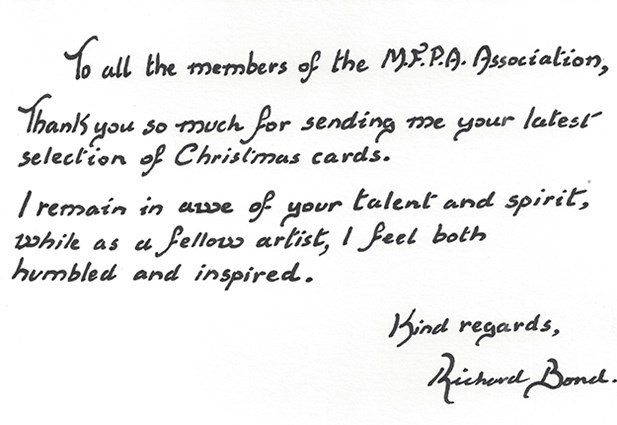 To all the members of the M.F.P.A. Association,
Thank you so much for sending me your latest
selection of Christmas cards.
I remain in awe of your talent and spirit,
while as a fellow artist, I feel both
humbled and inspired.
Kind regards,
Richard Bond.